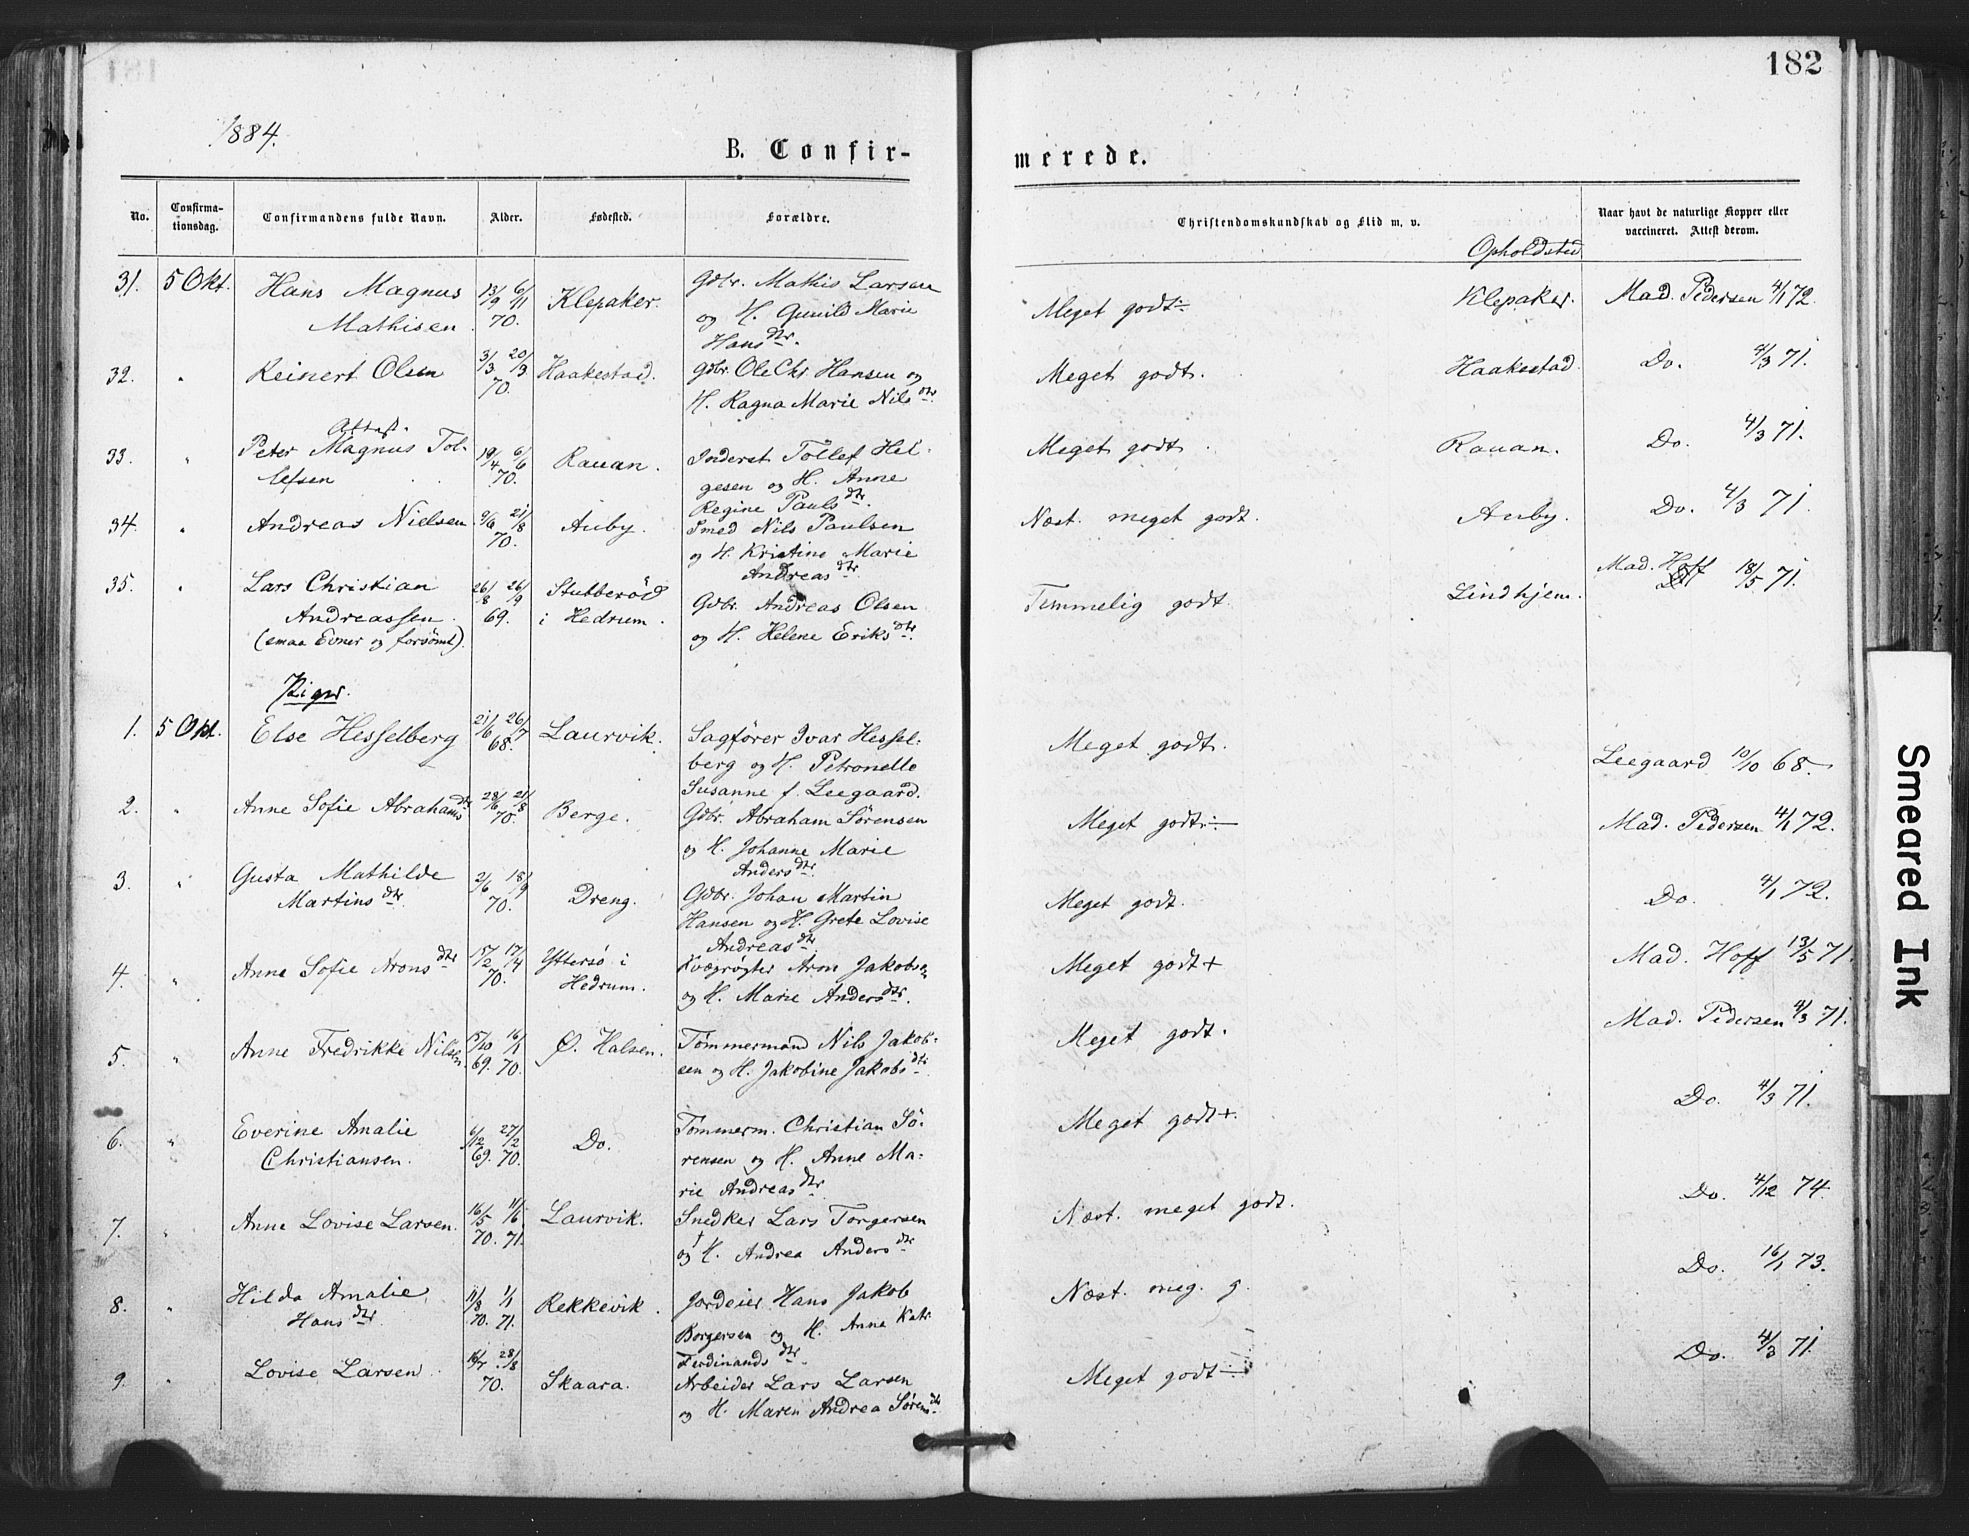 182
1884.
B. Confir-
merede.
No.
Confirma-
tionsdag.
Confirmandens fulde Navn.
Alder.
Fødested.
Forældre.
Christendomskundskab og Flid m. v.
Opholdsted
Naar havt de naturlige Kopper eller
vaccineret. Attest derom.
31. 5 Okt. Hans Magnus 13/9 6/11 Klepaker. Gdbr. Mathis Larsen Meget godt ÷ Klepaker. Mad. Pedersen 4/1 72.
Mathisen 70. og H. Gunild Marie
Hansdtr.
32. " Reinert Olsen 3/3 20/3 Haakestad. Gdbr. Ole Chr Hansen og Meget godt. Haakestad. Do. 4/3 71.
70. H. Ragna Marie Nilsdtr.
Attest.
33. " Peter Magnus Tol- 19/4 6/6 Rauan. Inderst Tollef Hel- Meget godt. Rauan. Do. 4/3 71.
lefsen 70. gesen og H. Anne
Regine Paulsdtr.
34. " Andreas Nielsen 9/6 21/8 Auby. Smed Nils Paulsen Næst. meget godt. Auby. Do. 4/3 71.
70. og H. Kristine Marie
Andreasdtr.
35. " Lars Christian 26/8 26/9 Stubberød Gdbr. Andreas Olsen Temmelig godt. Lindhjem. Mad. Hoff 18/5 71.
Andreassen. 69. i Hedrum. og H. Helene Eriksdtr.
(smaa Evner og forsømt).
Piger.
1. 5 Okt. Else Hesselberg 21/6 26/7 Laurvik. Sagfører Ivar Hessel- Meget godt. Leegaard 10/10 68.
68. berg og H. Petronelle
Susanne f. Leegaard.
2. " Anne Sofie Abrahamsdtr 28/6 21/8 Berge. Gdbr. Abraham Sørensen Meget godt ÷ Mad. Pedersen 4/1 72.
70. og H. Johanne Marie
Andersdtr.
3. " Gusta Mathilde 2/6 18/9 Dreng. Gdbr. Johan Martin Meget godt. Do. 4/1 72.
Martinsdtr. 70. Hansen og H. Grete Lovise
Andreasdtr.
4. " Anne Sofie Aronsdtr 15/2 17/4 Yttersø i Kvægrøgter Aron Jakobsen Meget godt + Mad. Hoff 13/5 71.
70. Hedrum. og H. Marie Andersdtr.
5. " Anne Fredrikke Nilsen. 15/10 16/1 Ø. Halsen. Tømmermand Nils Jakob- Meget godt. Mad. Pedersen 4/3 71.
69. 70. sen og H. Jakobine Jakobsdtr.
6. " Everine Amalie 6/12 27/2 Do. Tømmerm. Christian Sø- Meget godt +. Do. 4/3 71.
Christiansen. 69. 70. rensen og H. Anne Ma-
rie Andreasdtr.
7. " Anne Lovise Larsen. 16/5 11/6 Laurvik. Snedker Lars Torgersen Næst. meget godt. Do. 4/12 74.
70. 71. og H. Andrea Andersdtr
8. " Hilda Amalie 11/8 1/1 Rekkevik. Jordeier Hans Jakob Næst. meg. g. Do. 16/1 73.
Hansdtr. 70. 71. Borgersen og H. Anne Katr.
Ferdinandsdtr.
9. " Lovise Larsen. 16/7 28/8 Skaara. Arbeider Lars Larsen Meget godt ÷ Do. 4/3 71.
70. og H. Maren Andrea Sørensdtr.
Smeared Ink